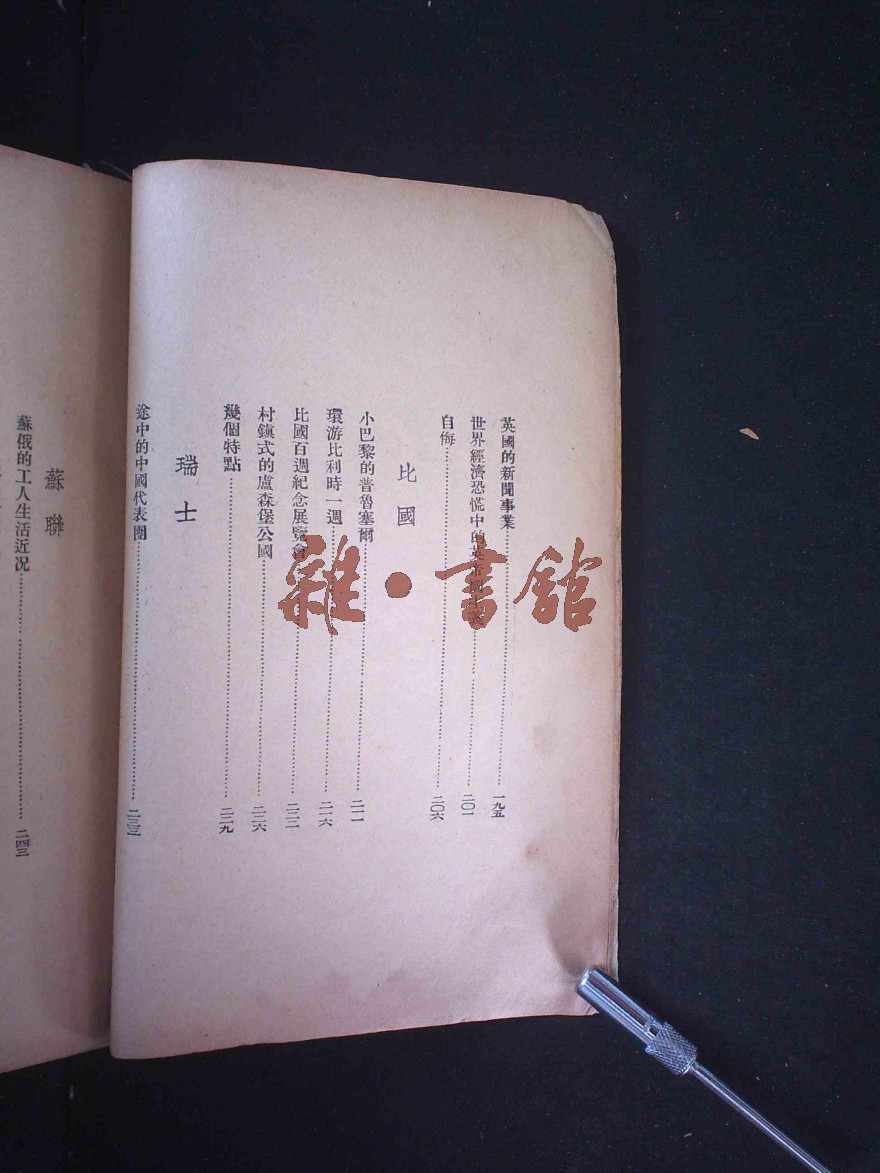 英國的新聞事業 一九五
世界經濟恐慌中的英帝國主義 二〇一
自侮 二〇六
比國
小巴黎的普魯塞爾 二一一
環游比利時一週 二一六
比國百週紀念展覽會 二二二
村鎮式的盧森堡公國 二二六
幾個特點 二二九
瑞士
途中的中國代表團 二三三
蘇聯
蘇俄的工人生活近況 二四三
雜·書館